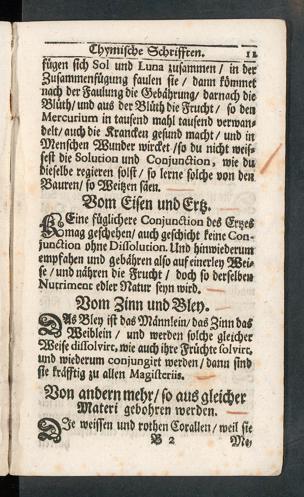 Chymische Schrifften. 11
fügen sich Sol und Luna zusammen / in der
Zusammenfügung faulen sie / dann kömmet
nach der Faulung die Gebährung / darnach die
Blüth / und aus der Blüth die Frucht / so den
Mercurium in tausend mahl tausend verwan-
delt / auch die Krancken gesund macht / und in
Menschen Wunder wircket / so du nicht weis-
sest die Solution und Conjunction, wie du
dieselbe regieren solst / so lerne solche von den
Bauren / so Weitzen säen.
Vom Eisen und Ertz.
KEine füglichere Conjunction des Ertzes
mag geschehen / auch geschicht keine Con-
junction ohne Dissolution. Und hinwiederum
empfahen und gebähren also auf einerley Wei-
se / und nähren die Frucht / doch so derselben
Nutriment edler Natur seyn wird.
Vom Zinn und Bley.
DAs Bley ist das Männlein / das Zinn das
Weiblein / und werden solche gleicher
Weise dissolvirt, wie auch ihre Früchte solvirt,
und wiederum conjungirt werden / dann sind
sie kräfftig zu allen Magisteriis.
Von andern mehr / so aus gleicher
Materi gebohren werden.
DIe weissen und rothen Corallen / weil sie
B 2 Me